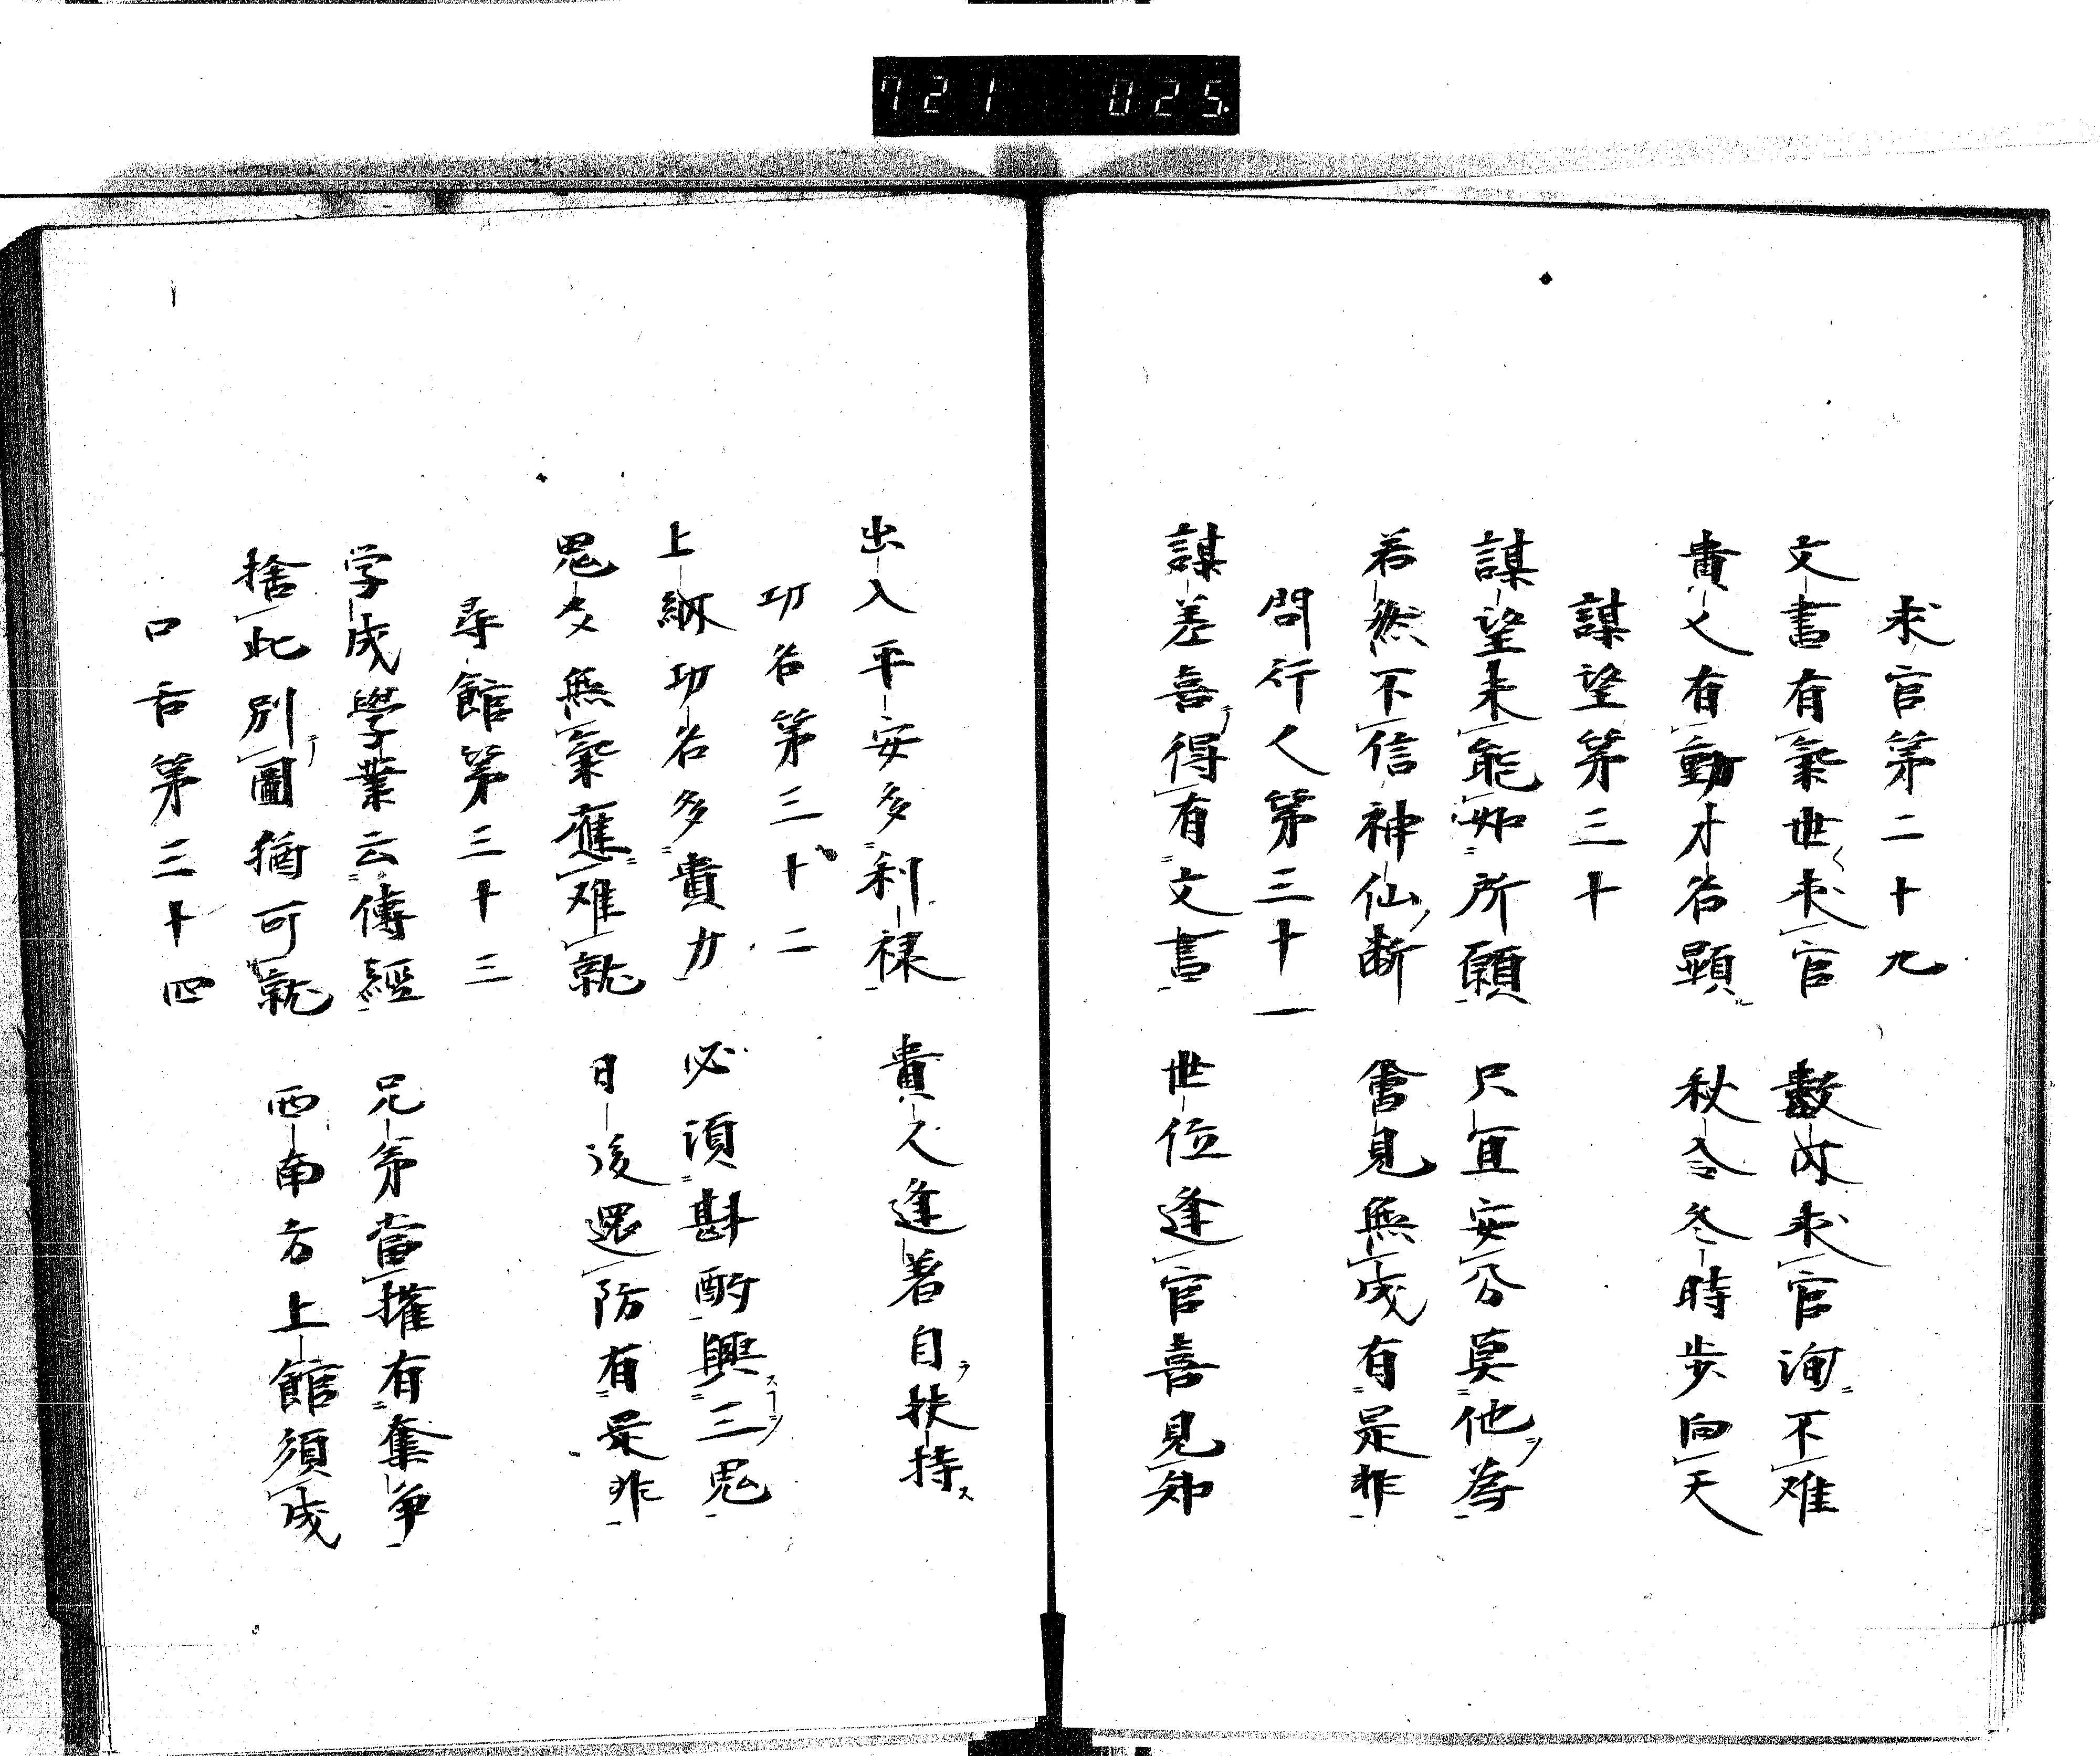 721 025
求官第二十九
文書有氣世求官 數次求官洵不难
貴人有動才名顕 秋令冬時步向天
謀望第三十
謀望未能如所願 只宜安分莫他為
若然不信神仙断 會見無成有是非
問行人第三十一
謀差喜得有文書 世位逢官喜見知
出入平安多利禄 貴人逢着自扶持
功名第三十二
上納功名多費力 必須斟酌興三思
思文無氣應难就 日後還防有是非
尋館第三十三
学成學業云傳經 兄弟當權有奪争
捨此別圖猶可就 西南方上館須成
口舌第三十四